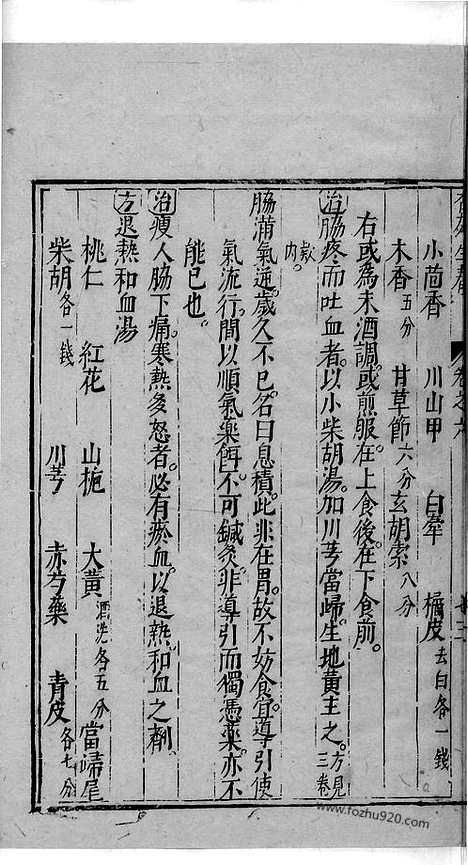 小茴香　川山甲　白牽　橘皮去白各一錢
木香五分　甘草節六分　玄胡索八分
右或為末酒調。或煎服。在上食後。在下食前。
治脇疼而吐血者。以小柴胡湯。加川芎當歸生地黃主之。方見三卷
欬内。
脇滿氣逆。歲久不已。名曰息積。此非在胃。故不妨食。宜導引使
氣流行。間以順氣藥餌。不可鍼灸。非導引而獨憑藥。亦不
能已也。
治瘦人脇下痛。寒熱多怒者。必有瘀血。以退熱和血之劑。
方退熱和血湯
桃仁　紅花　山梔　大黃酒洗各五分　當歸尾
柴胡各一錢　川芎　赤芍藥　青皮各七分
www.fozhu920.com